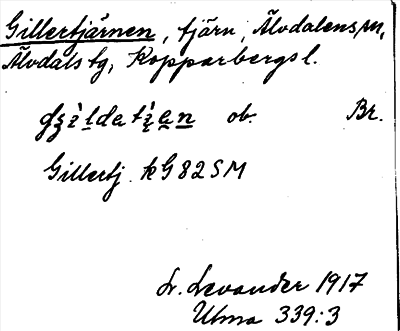 Gillertjärnen, tjärn, Älvdalens sn,
Älvdals tg, Kopparbergs l.
ob. Br.
Gillertj. kG 82 SM
L. Levander 1917
Utma 339:3